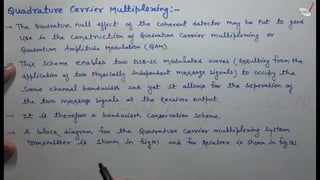 Quadrature Carrier Multiplexing:-
→ The Quadrature null effect of the coherent detector may be put to good
use in the construction of Quadrature carrier multiplexing or
Quadrature Amplitude Modulation (QAM).
→ This scheme enables two DSB-SC modulated waves (resulting from the
application of two Physically Independent message signals) to occupy the
same channel bandwidth and yet it allows for the seperation of
the two message signals at the receiver output.
→ It is therefore a bandwidth conservation scheme.
→ A block diagram for the Quadrature Carrier multiplexing system
Transmitter is shown in fig(a). and for receiver is shown in fig(b).